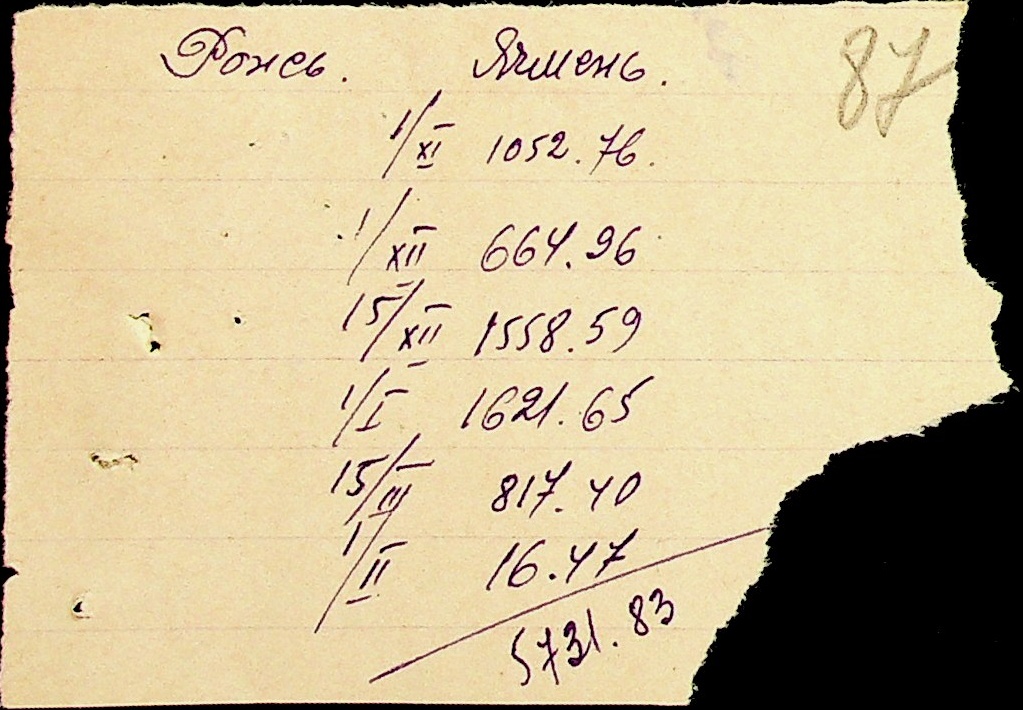 Рожь. Ячмень. 87
1/XI 1052.76.
1/XII 664.96
15/XII 1558.59
1/I 1621.65
15/III 817.40
1/II 16.47
5731.83